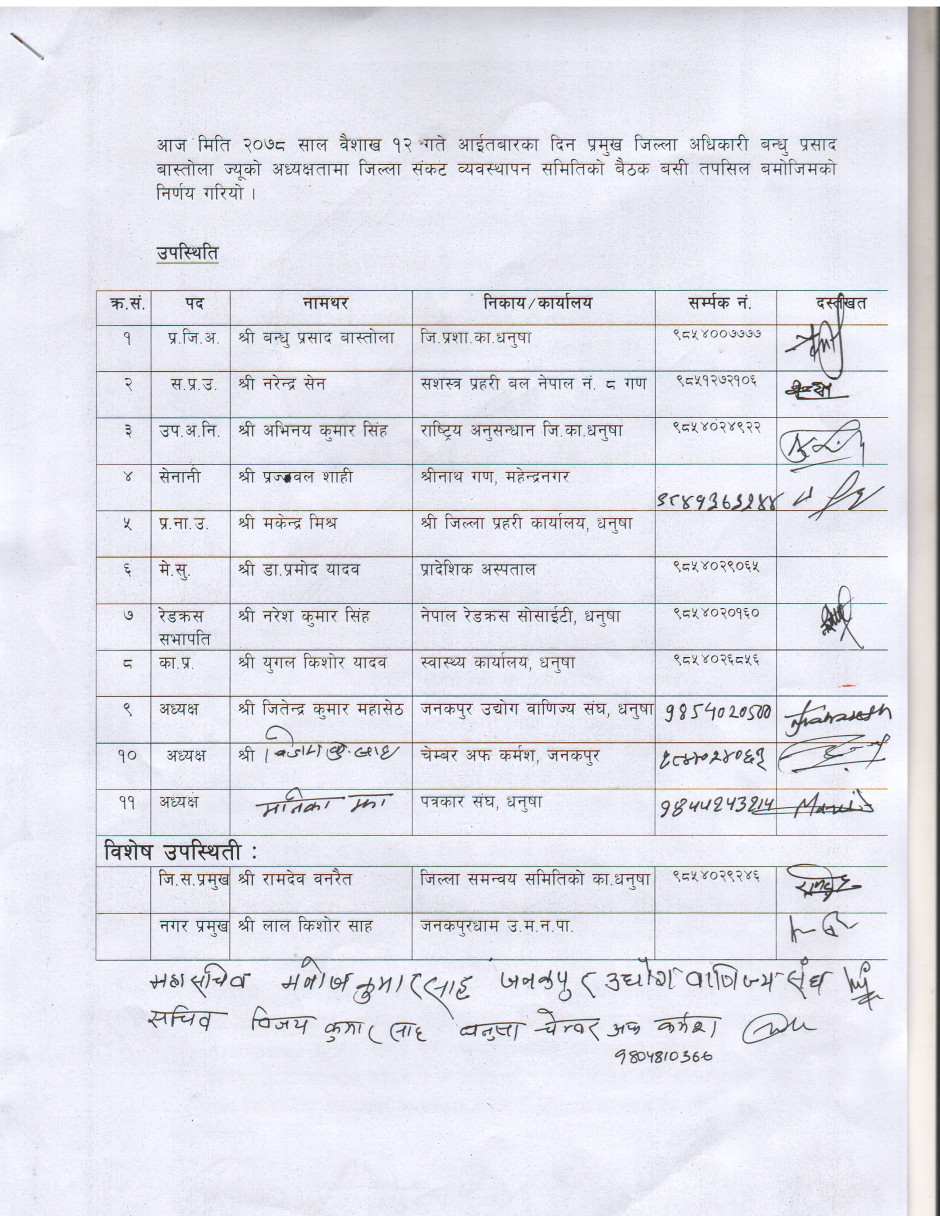 आज मिति २०७८ साल वैशाख १२ गते आईतबारका दिन प्रमुख जिल्ला अधिकारी बन्धु प्रसाद
बास्तोला ज्यूको अध्यक्षतामा जिल्ला संकट व्यवस्थापन समितिको बैठक बसी तपसिल बमोजिमको
निर्णय गरियो ।
उपस्थिति
क्र.सं. पद नामथर निकाय/कार्यालय सर्म्पक नं. दस्तीखत
१ प्र.जि.अ. श्री बन्धु प्रसाद बास्तोला जि.प्रशा.का.धनुषा ९८५४००७७७७
२ स.प्र.उ. श्री नरेन्द्र सेन सशस्त्र प्रहरी बल नेपाल नं. ८ गण ९८५१२७२१०६
३ उप.अ.नि. श्री अभिनय कुमार सिंह राष्ट्रिय अनुसन्धान जि.का.धनुषा ९८५४०२४९२२
४ सेनानी श्री प्रज्जवल शाही श्रीनाथ गण, महेन्द्रनगर
५ प्र.ना.उ. श्री मकेन्द्र मिश्र श्री जिल्ला प्रहरी कार्यालय, धनुषा
६ मे.सु. श्री डा.प्रमोद यादव प्रादेशिक अस्पताल ९८५४०२९०६५
७ रेडक्रस श्री नरेश कुमार सिंह नेपाल रेडक्रस सोसाईटी, धनुषा ९८५४०२०१६०
सभापति
८ का.प्र. श्री युगल किशोर यादव स्वास्थ्य कार्यालय, धनुषा ९८५४०२६८५६
९ अध्यक्ष श्री जितेन्द्र कुमार महासेठ जनकपुर उद्योग वाणिज्य संघ, धनुषा 9854020500
१० अध्यक्ष श्री चेम्बर अफ कर्मश, जनकपुर
११ अध्यक्ष पत्रकार संघ, धनुषा 9844243214
विशेष उपस्थिती :
जि.स.प्रमुख श्री रामदेव वनरैत जिल्ला समन्वय समितिको का.धनुषा ९८५४०२९२४६
नगर प्रमुख श्री लाल किशोर साह जनकपुरधाम उ.म.न.पा.
महासचिव मनोज कुमार साह जनकपुर उद्योग वाणिज्य संघ
सचिव विजय कुमार साह धनुषा चेम्बर अफ कर्मश
9804810366